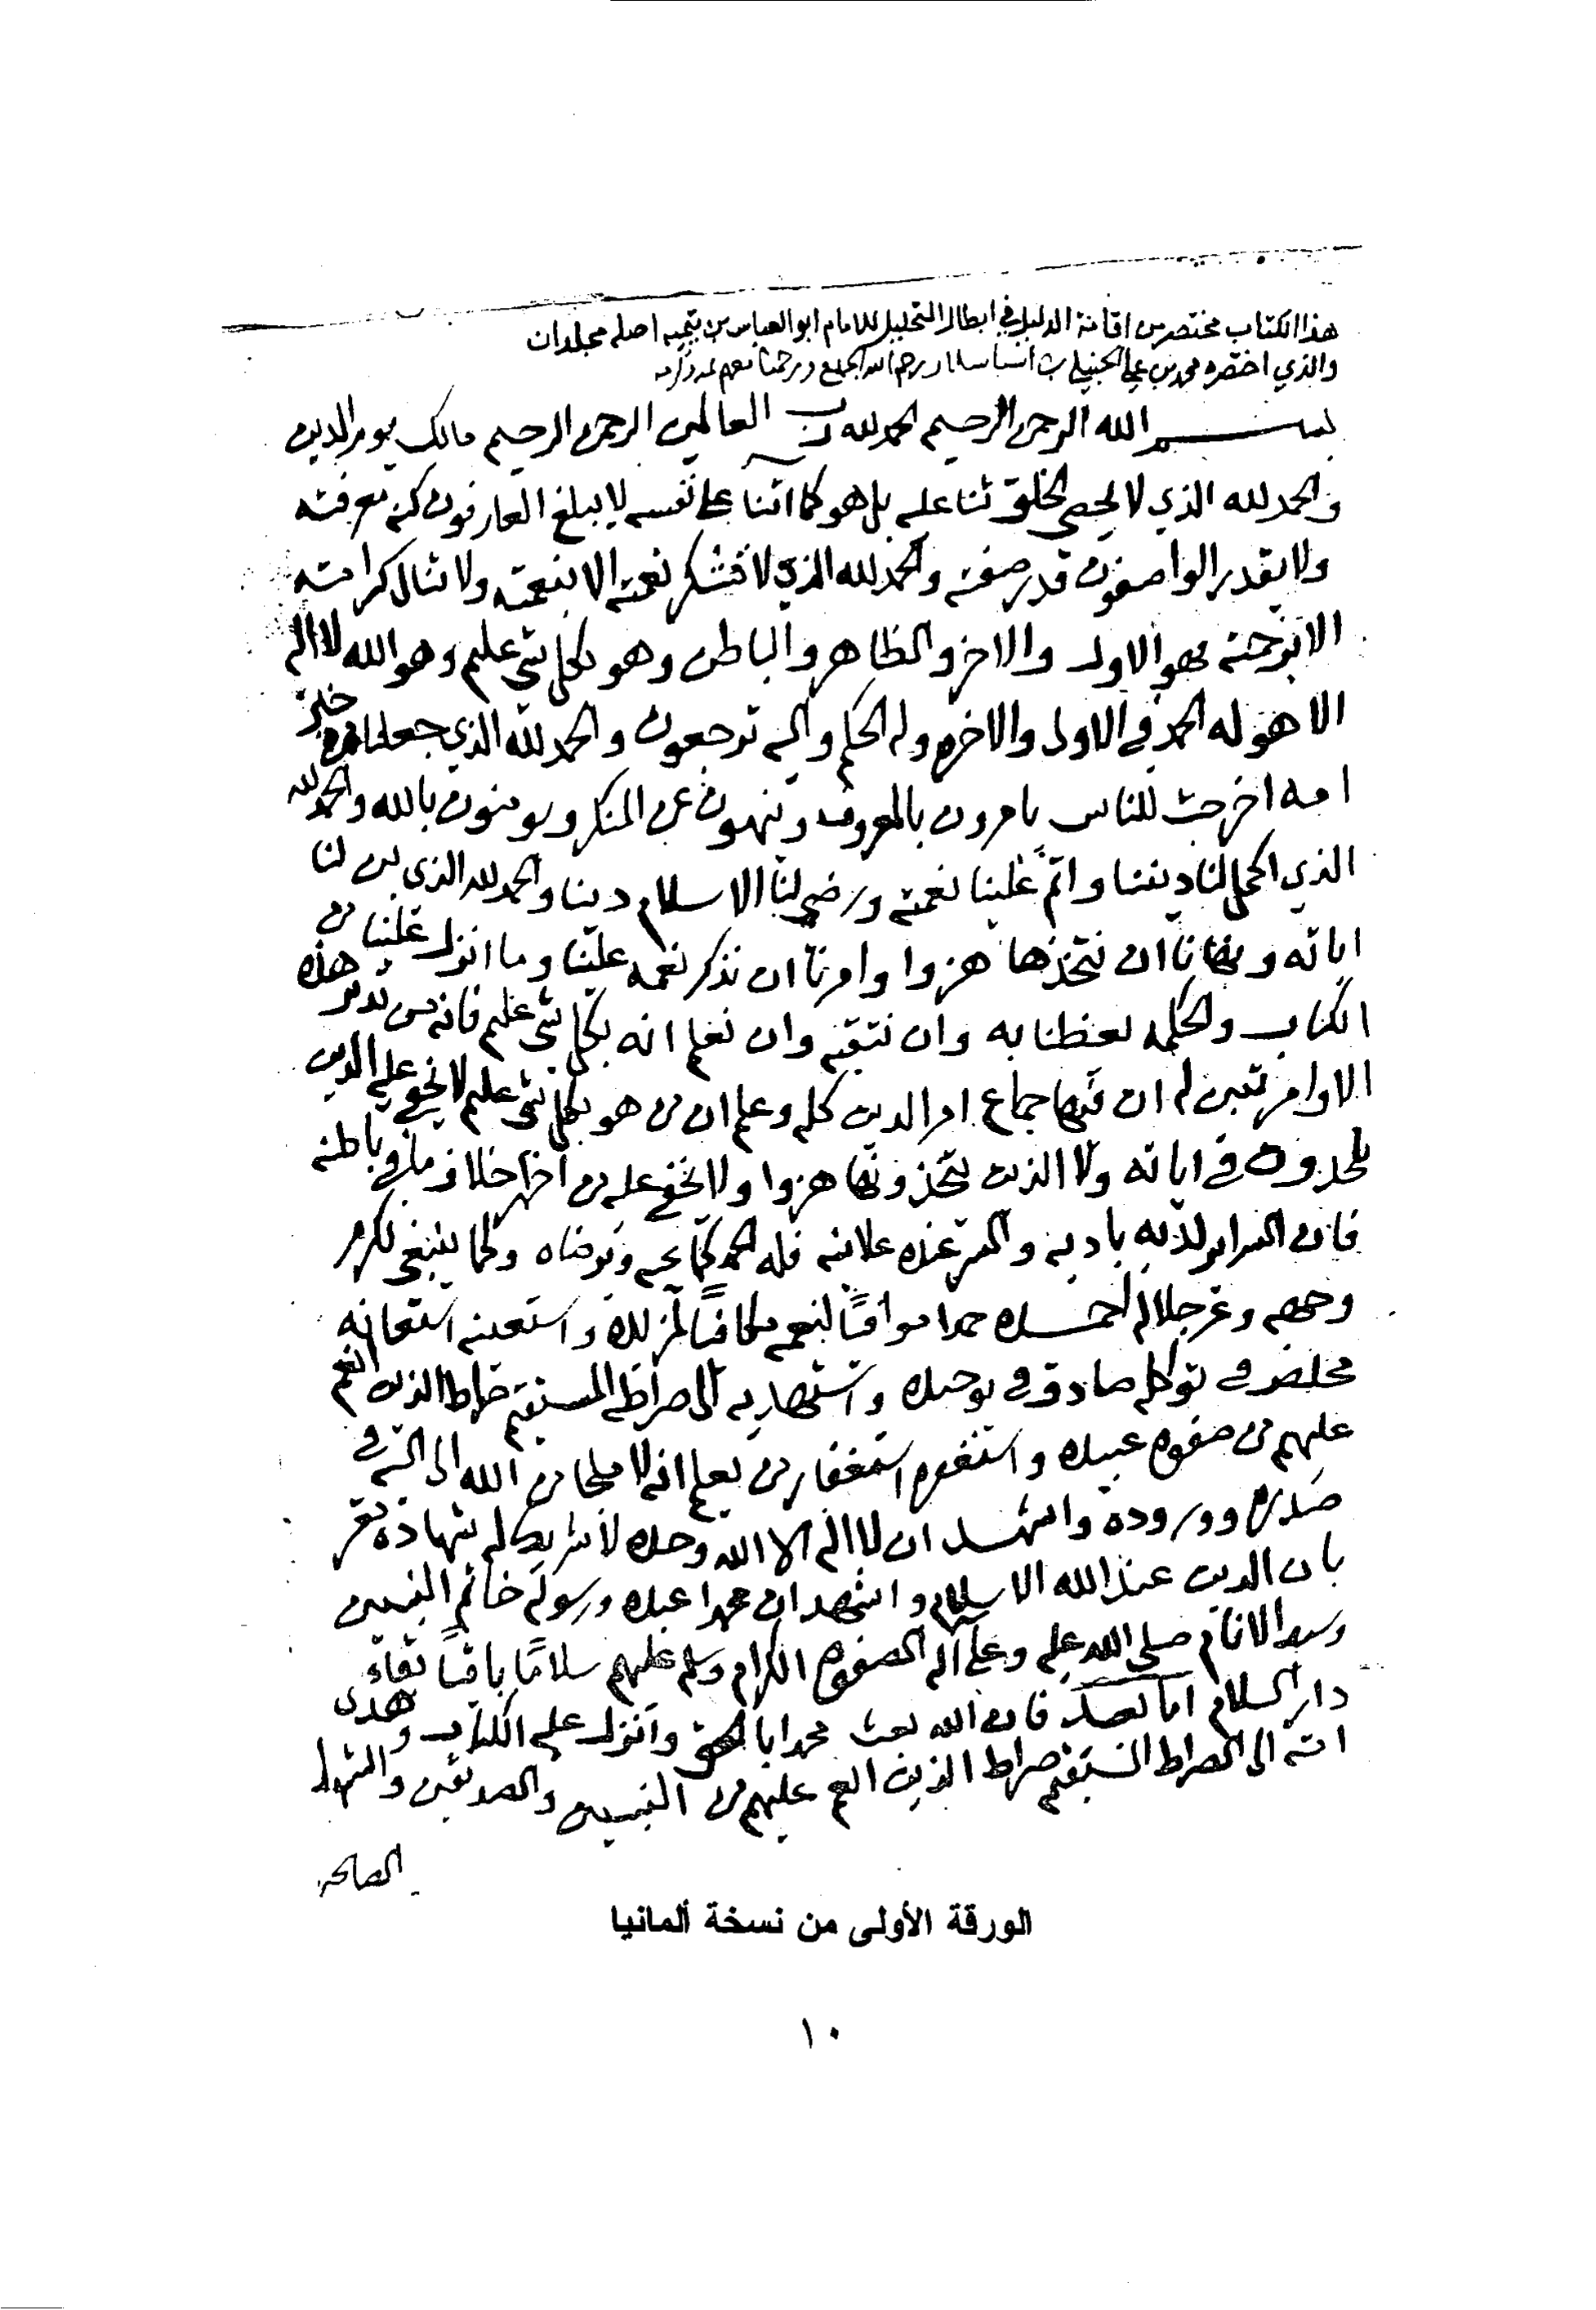 هذا الكتاب مختصر من اقامة الدليل في ابطال التحليل للامام ابو العباس بن تيميه اصله مجلدان
والذي اختصره محمد بن علي الحنبلي رحم الله الجميع ورحمنا معهم
بسم الله الرحمن الرحيم الحمد لله رب العالمين الرحمن الرحيم مالك يوم الدين
والحمد لله الذي لا يحصي الخلق ثنا عليه بل هو كما اثنا على نفسه لا يبلغ العارفون كنه معرفته
ولا يقدر الواصفون قدر صفته والحمد لله الذي لا تشكر نعمته الا بنعمته ولا تنال كرامته
الا برحمته فهو الاول والاخر والظاهر والباطن وهو بكل شي عليم وهو الله لا اله
الا هو له الحمد في الاولى والاخره وله الحكم واليه ترجعون والحمد لله الذي جعلنا من خير
امه اخرجت للناس يامرون بالمعروف وينهون عن المنكر ويومنون بالله والحمد لله
الذي اكمل لنا ديننا واتم علينا نعمته ورضي لنا الاسلام دينا والحمد لله الذي بين لنا
اياته ونهانا ان نتخذها هزوا وامرنا ان نذكر نعمه علينا وما انزل علينا من
الكتاب والحكمه يعظنا به وان نتقيه وان نعلم انه بكل شي عليم فانه من تدبر هذه
الاوامر تبين له ان فيها جماع امر الدين كله وعلم ان من هو بكل شي عليم لا يخفى عليه الذين
يلحدون في اياته ولا الذين يتخذونها هزوا ولا يخفى عليه من اظهر خلاف ما في باطنه
فان السراير لديه باديه والسر عنده علانيه فله الحمد كما يحبه ويرضاه وكما ينبغي لكرم
وجهه وعز جلاله احمده حمدا موافيًا لنعمه مكافيًا لمزيده واستعينه استعانة
مخلص في توكله صادق في توحيده واستهديه الى صراطه المستقيم صراط الذين انعم
عليهم من صفوه عبيده واستغفره استغفار من يعلم انه لا ملجا من الله الا اليه في
صدره ووروده واشهد ان لا اله الا الله وحده لا شريك له شهادة مقر
بان الدين عند الله الاسلام واشهد ان محمدا عبده ورسوله خاتم النبيين
وسيد الانام صلى الله عليه وعلى آله الصفوه الكرام وسلم عليهم سلامًا باقيًا بقاء
دار السلام اما بعد فان الله بعث محمدا بالحق وانزل عليه الكتاب وهدى
امته الى الصراط المستقيم صراط الذين انعم عليهم من النبيين والصديقين والشهدا
الصالحين
الورقة الأولى من نسخة ألمانيا
١٠